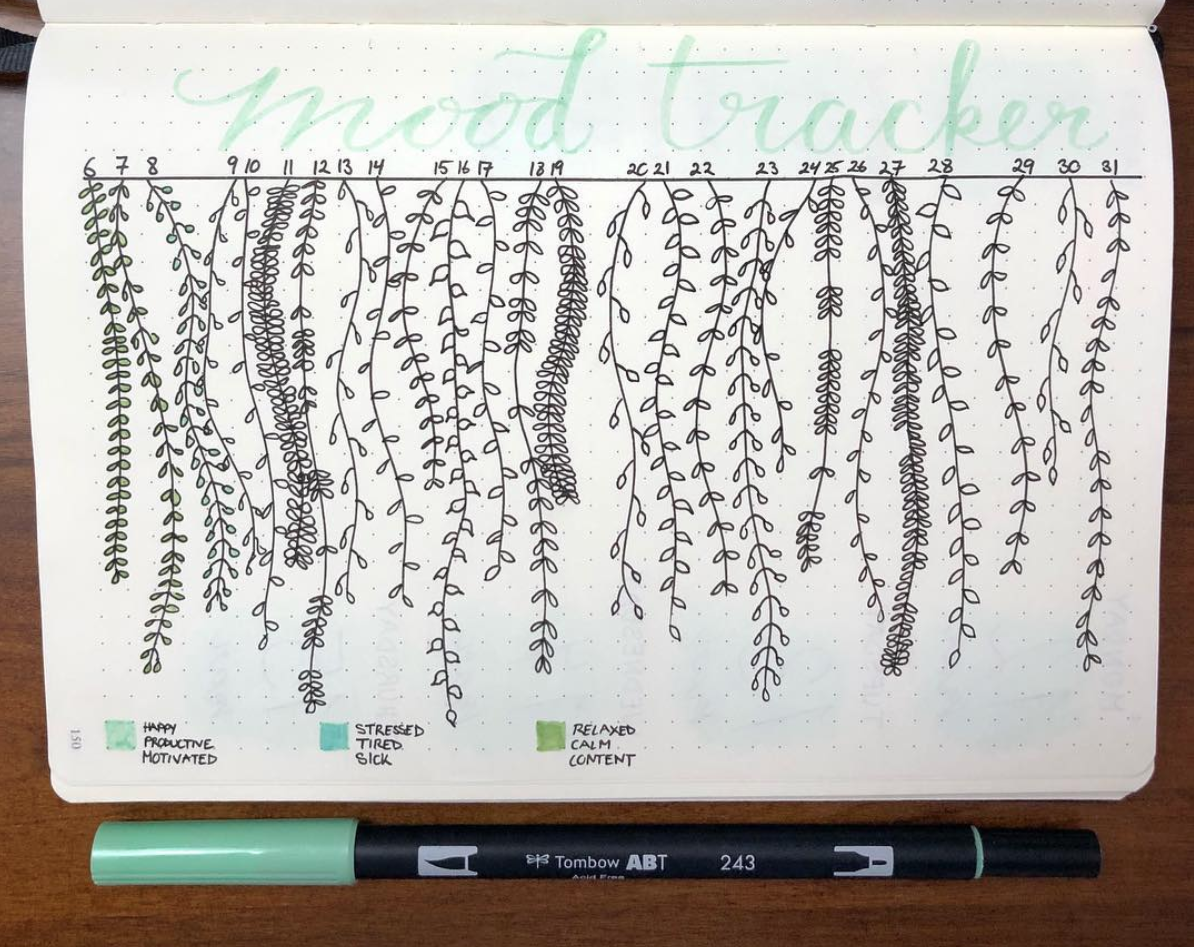 mood tracker
6 7 8 9 10 11 12 13 14 15 16 17 18 19 20 21 22 23 24 25 26 27 28 29 30 31
HAPPY
PRODUCTIVE
MOTIVATED
STRESSED
TIRED
SICK
RELAXED
CALM
CONTENT
150
Tombow ABT 243
Acid Free